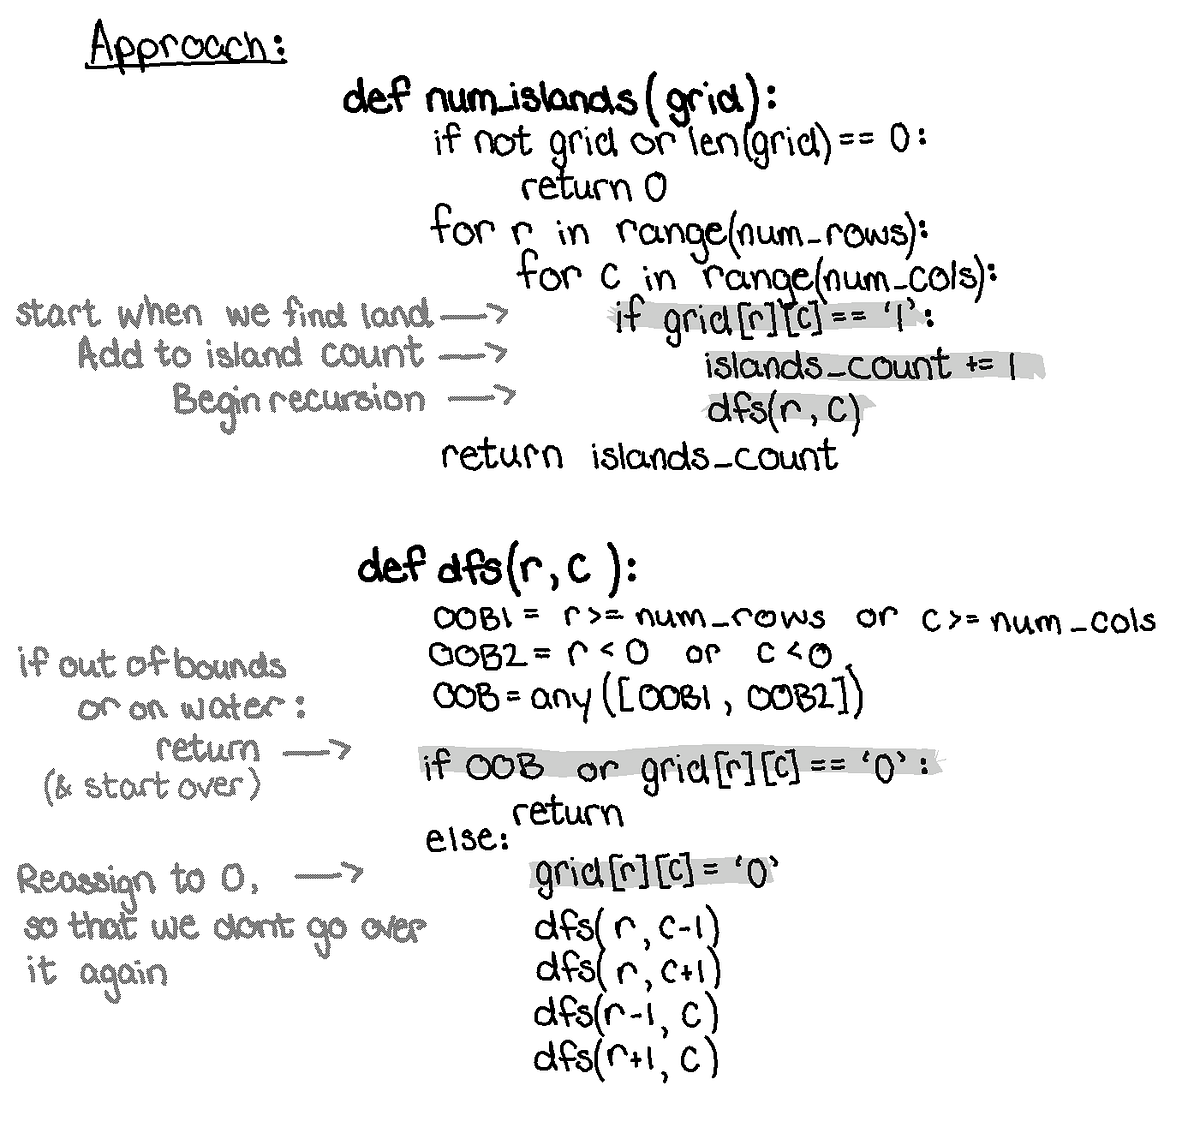 Approach:
def num_islands(grid):
if not grid or len(grid) == 0:
return 0
for r in range(num_rows):
for c in range(num_cols):
start when we find land —> if grid[r][c] == '1':
Add to island count —> islands_count += 1
Begin recursion —> dfs(r, c)
return islands_count
def dfs(r, c ):
OOB1 = r >= num_rows or c >= num_cols
OOB2 = r < 0 or c < 0
OOB = any ([OOB1, OOB2])
if out of bounds
or on water:
return —>
(& start over)
if OOB or grid[r][c] == '0':
return
else:
Reassign to 0, —>
so that we dont go over
it again
grid[r][c] = '0'
dfs( r, c-1)
dfs( r, c+1)
dfs(r-1, c)
dfs(r+1, c)